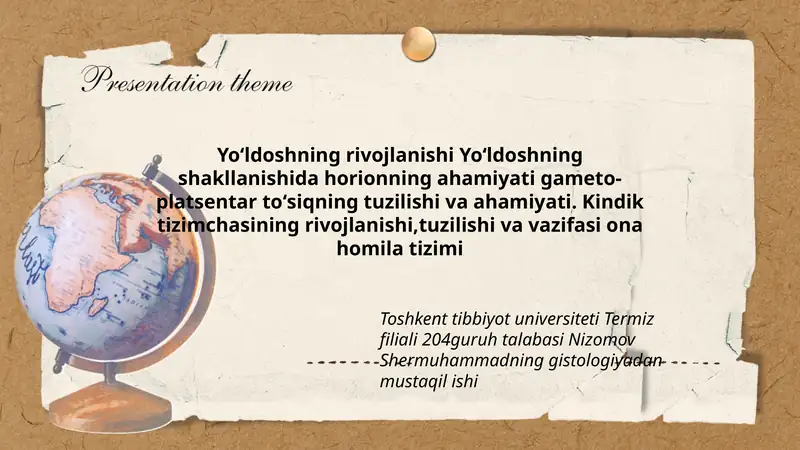 Presentation theme
Yo‘ldoshning rivojlanishi Yo‘ldoshning
shakllanishida horionning ahamiyati gameto-
platsentar to‘siqning tuzilishi va ahamiyati. Kindik
tizimchasining rivojlanishi,tuzilishi va vazifasi ona
homila tizimi
Toshkent tibbiyot universiteti Termiz
filiali 204guruh talabasi Nizomov
Shermuhammadning gistologiyadan
mustaqil ishi